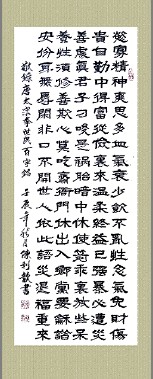 慾寡精神爽思多血氣衰少飲不亂性忍氣免財傷
貴自勤中得富從儉裏來溫柔終益己強暴必遭災
善處真君子刁唆是禍胎暗中休使箭乖裏放些呆
養性須修善欺心莫吃齋衙門休出入鄉黨要龢諧
安份身無辱閒非口不開世人依此語災退福重來
敬錄唐太宗李世民百字銘 壬辰年秋月陳利書